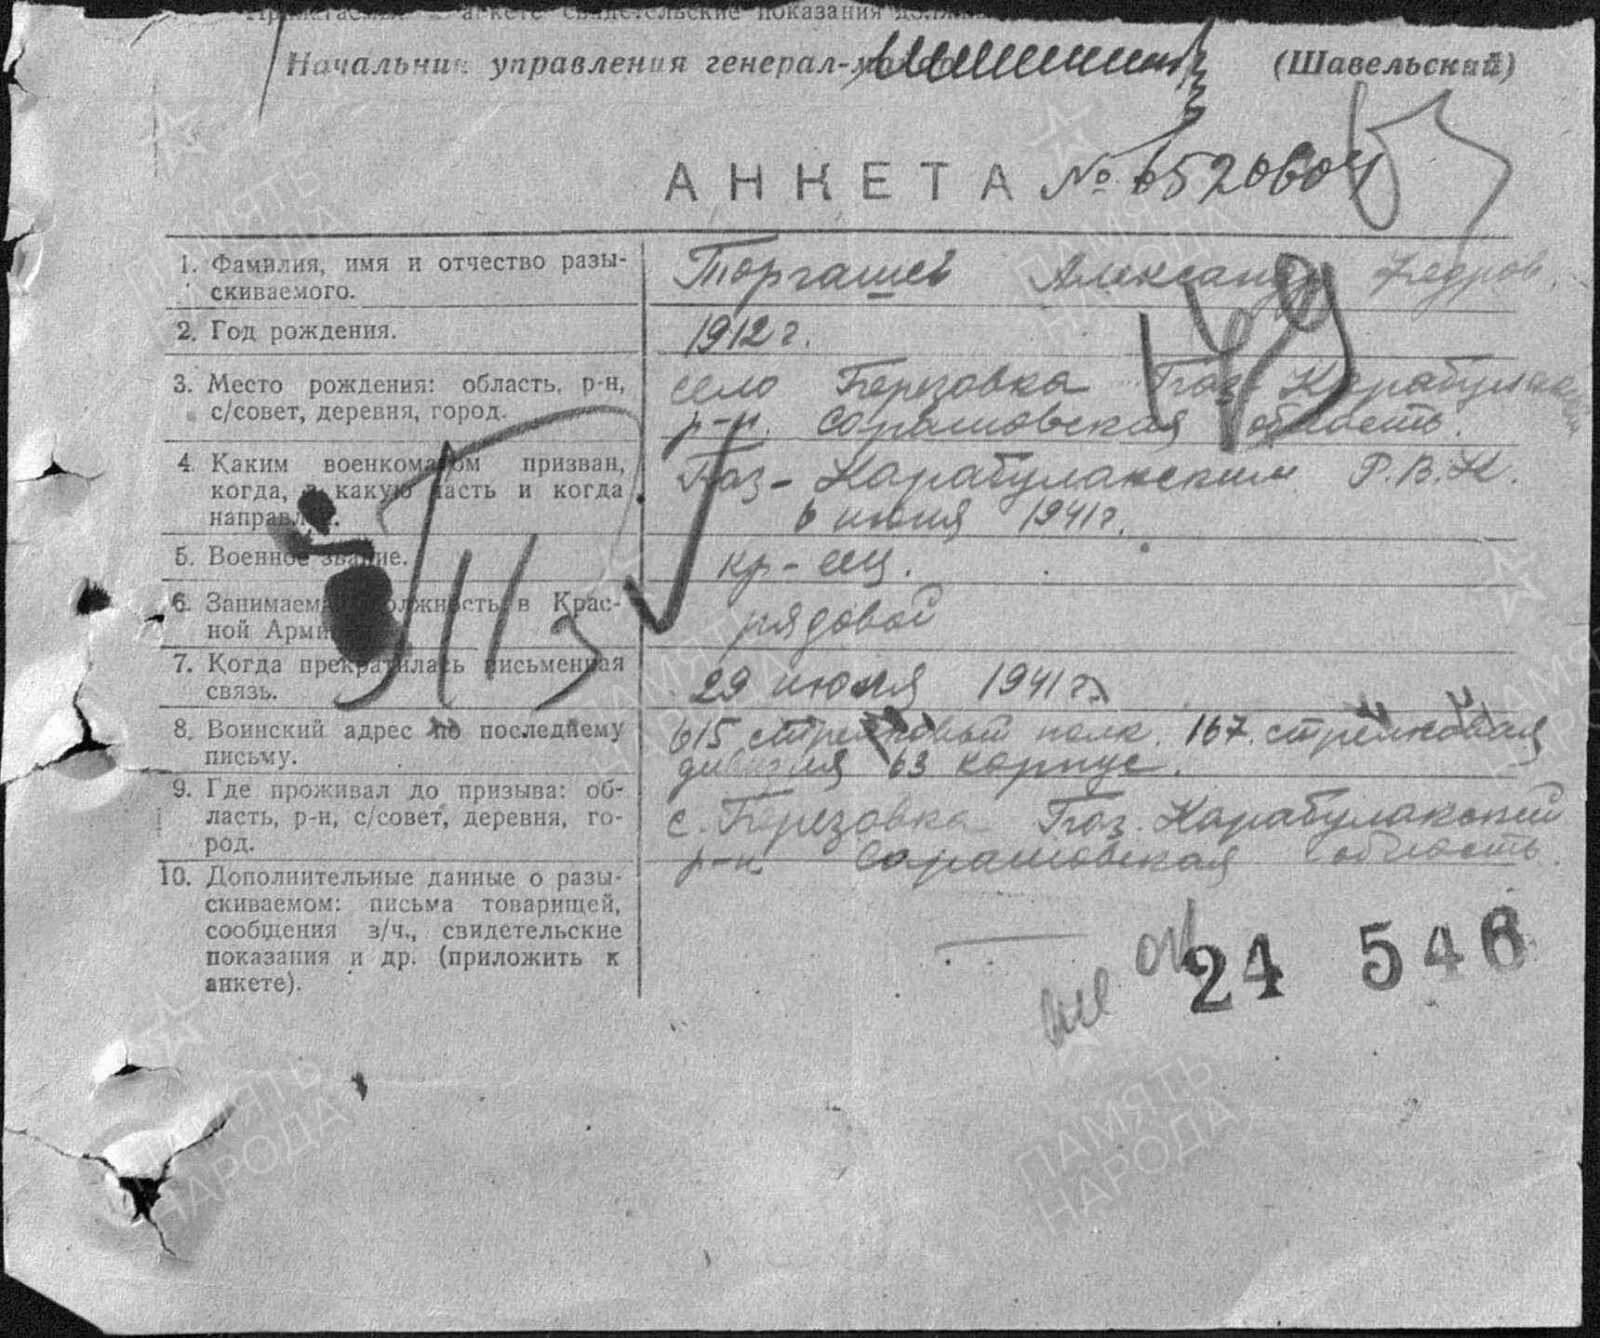 анкете свидетельские показания
Начальник управления генерал- (Шавельский)
АНКЕТА № 6520604
1. Фамилия, имя и отчество разы-
скиваемого.
Торгашев Александр Федров.
2. Год рождения.
1912 г.
3. Место рождения: область, р-н,
с/совет, деревня, город.
село Березовка Баз-Карабулакский
р-н. Саратовская область.
49
4. Каким военкоматом призван,
когда, в какую часть и когда
направлен.
Баз-Карабулакским Р.В.К.
6 июня 1941 г.
5. Военное звание.
кр-еец.
6. Занимаемая должность в Крас-
ной Армии
рядовой
7. Когда прекратилась письменная
связь.
29 июня 1941 г.
8. Воинский адрес по последнему
письму.
615 стрелковый полк. 167. стрелковая
дивизия 63 корпус.
9. Где проживал до призыва: об-
ласть, р-н, с/совет, деревня, го-
род.
с. Березовка Баз. Карабулакский
р-н Саратовская область.
10. Дополнительные данные о разы-
скиваемом: письма товарищей,
сообщения з/ч., свидетельские
показания и др. (приложить к
анкете).
24 546
ПАМЯТЬ
НАРОДА